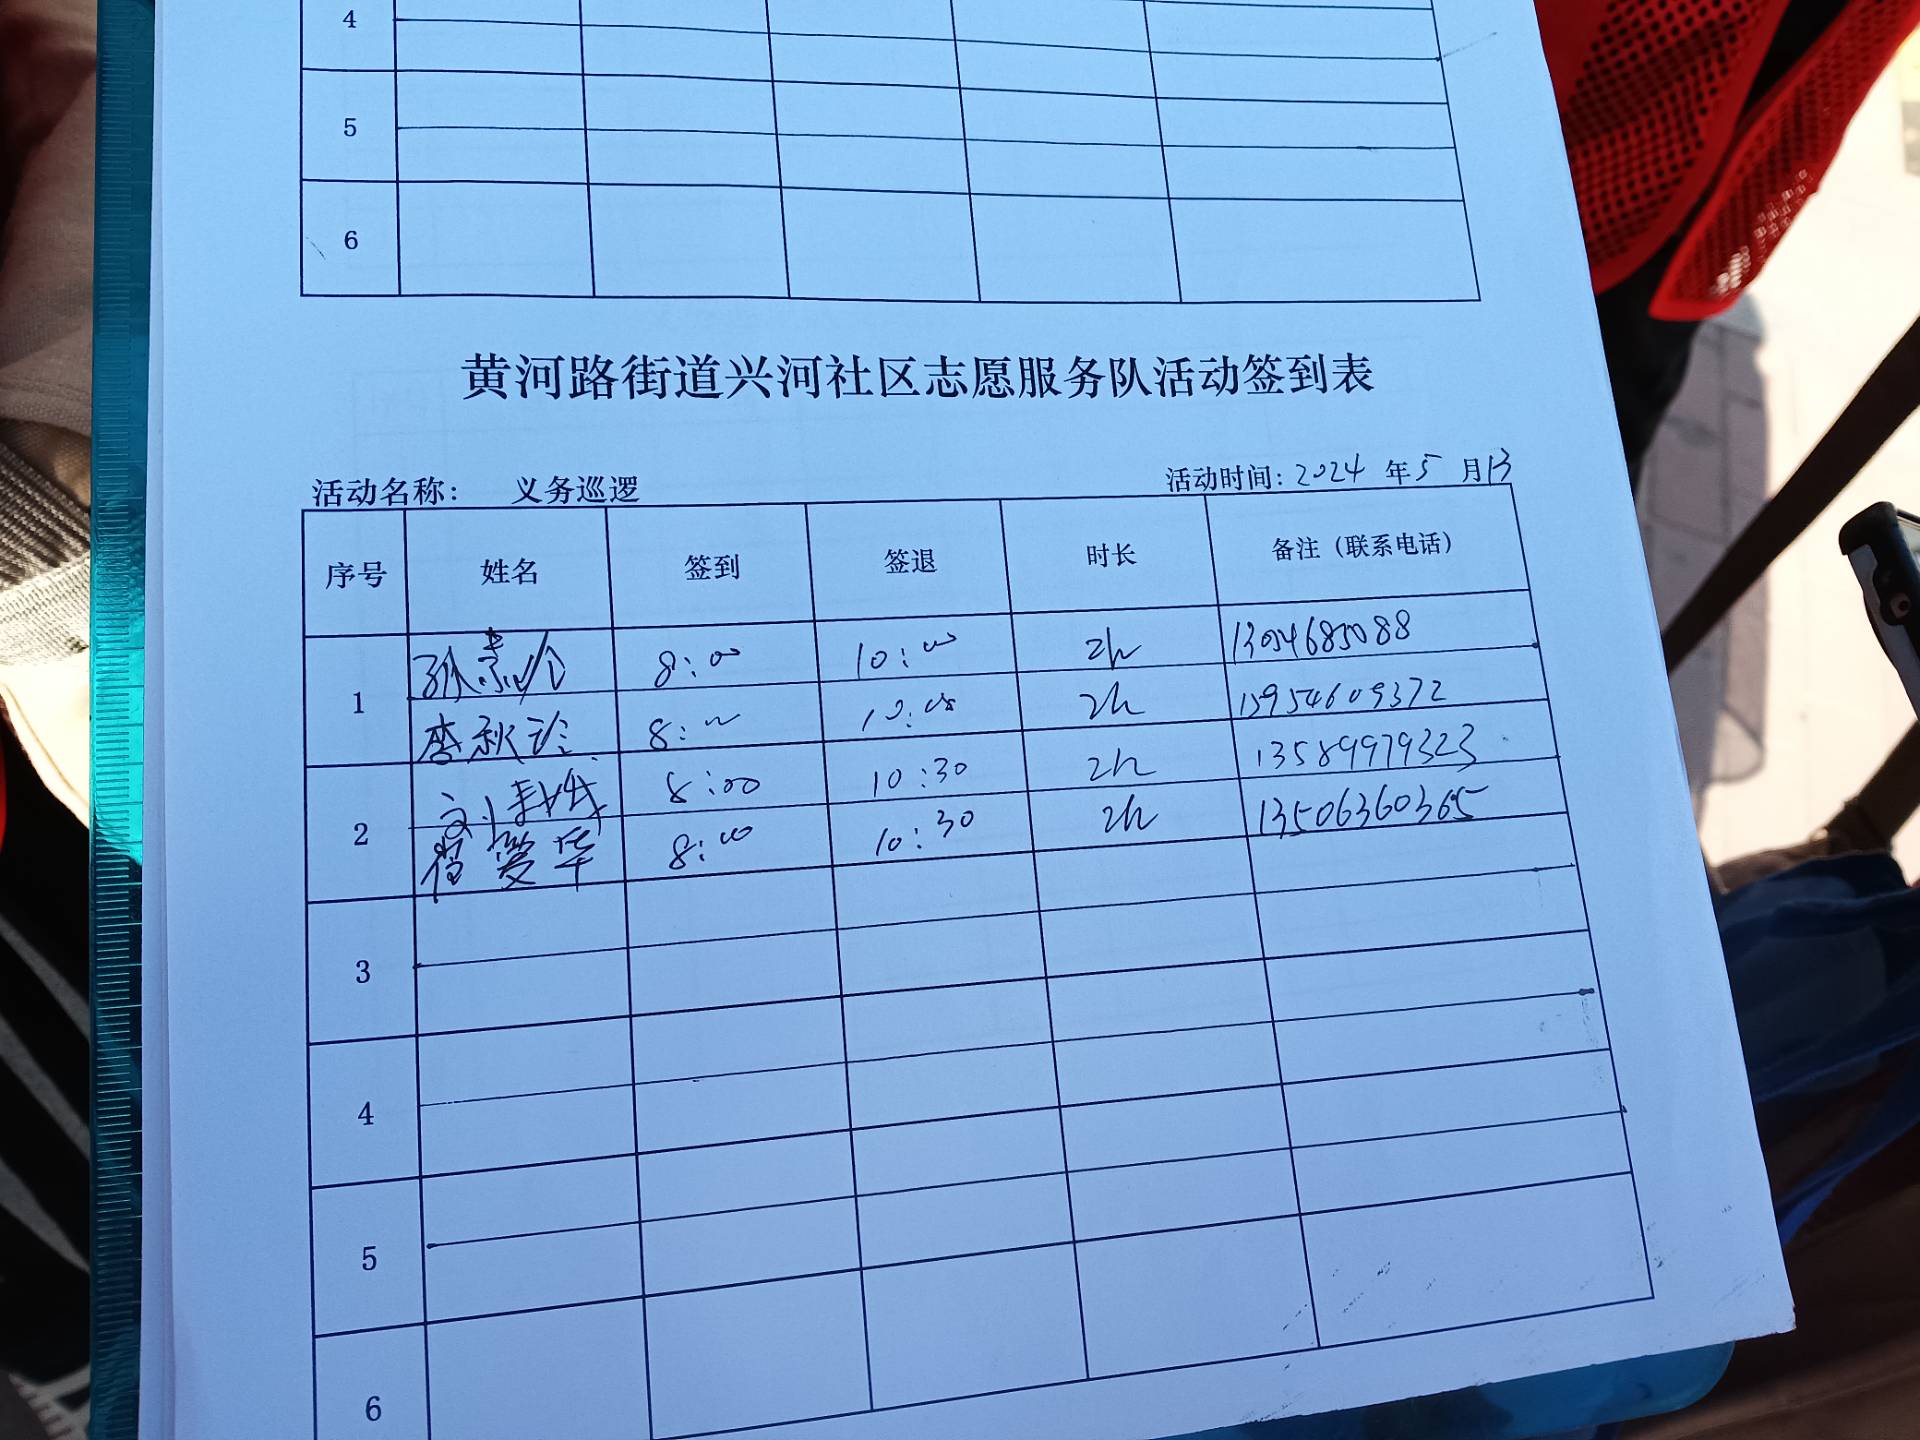 4
5
6
黄河路街道兴河社区志愿服务队活动签到表
活动名称： 义务巡逻 活动时间：2024 年 5 月 13
序号 姓名 签到 签退 时长 备注（联系电话）
1
孙 8:00 10:00 2h 13054685088
李秋 8:00 10:00 2h 15954609372
2
刘 8:00 10:30 2h 13589979323
爱华 8:00 10:30 2h 13506360365
3
4
5
6